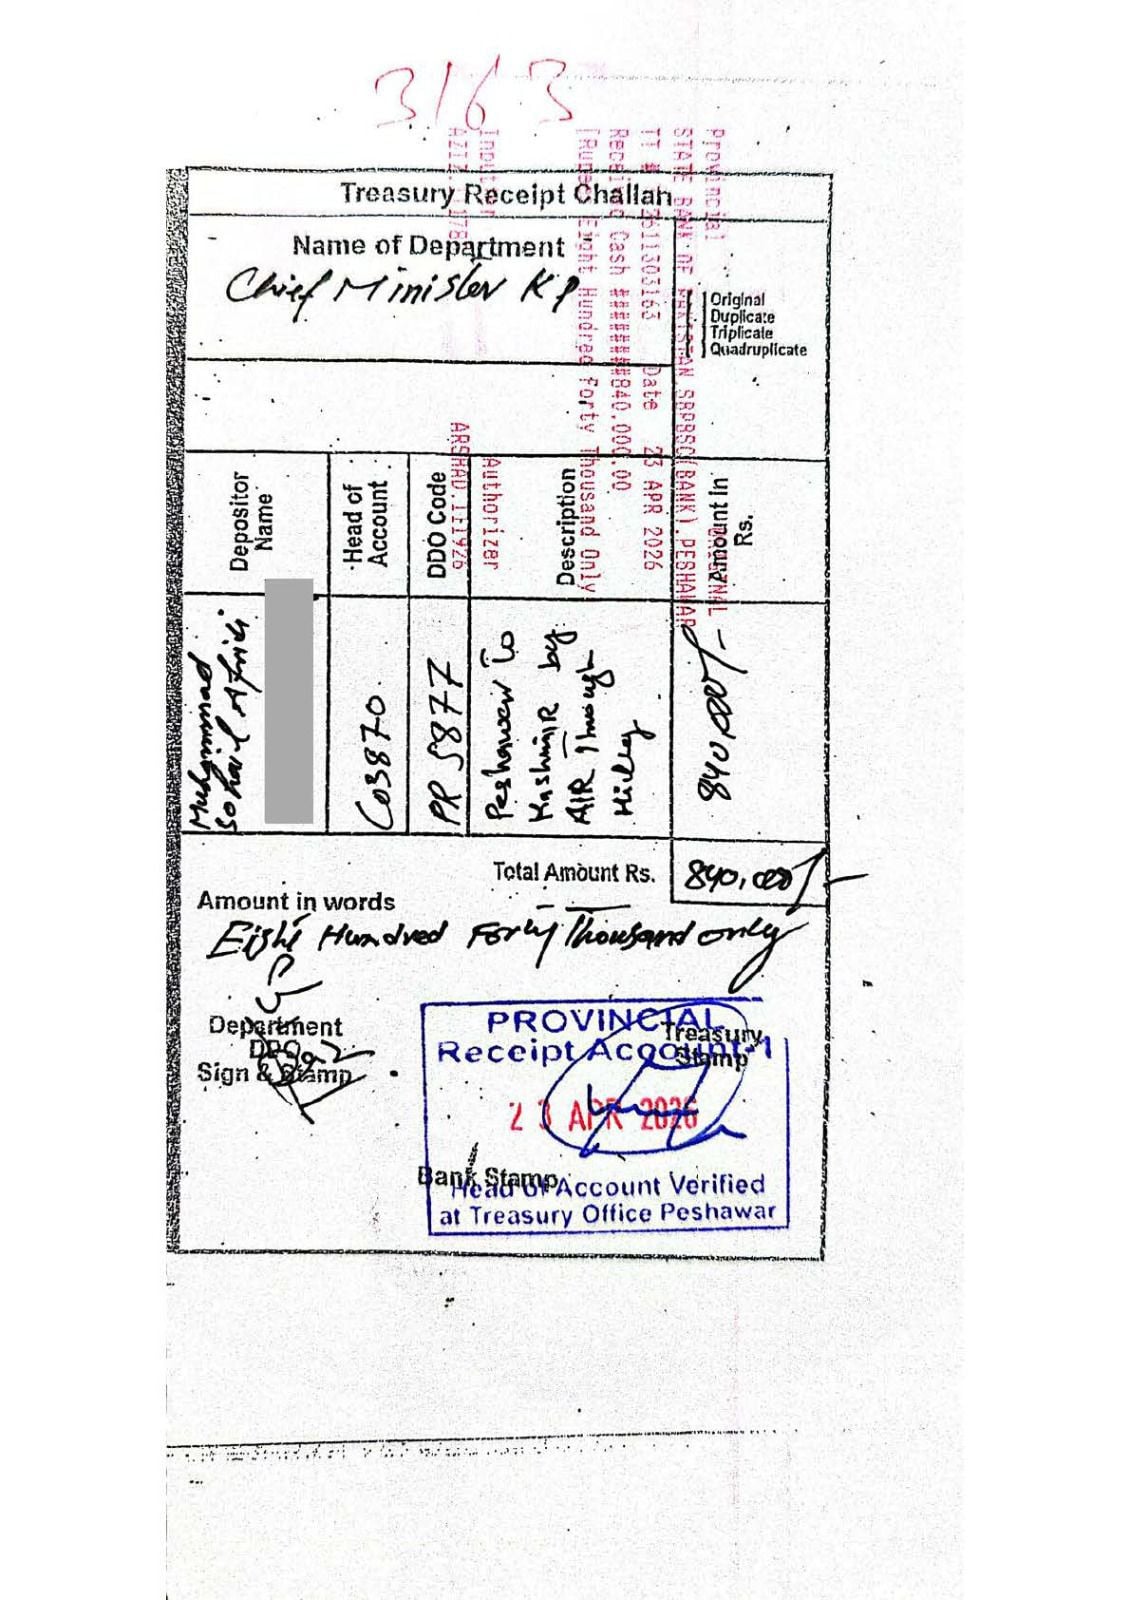 3163
Provincial
STATE BANK OF PAKISTAN SBPBSC(BANK), PESHAWAR
TT # Date 23 APR 2026
Cash ########840,000.00
Eight Hundred Forty Thousand Only
Authorizer
Treasury Receipt Challan
Name of Department
Chief Minister KP
Original
Duplicate
Triplicate
Quadruplicate
Depositor Name
Head of Account
DDO Code
Description
Amount In Rs.
Muhammad
Sohail Afridi
C03870
PR 5877
Peshawar to
Kashmir by
AIR Through
840,000/-
Total Amount Rs. 840,000/-
Amount in words
Eight Hundred Forty Thousand only
Department
DDO
Sign & Stamp
PROVINCIAL
Receipt Account-1
Treasury
Stamp
23 APR 2026
Bank Stamp
Head of Account Verified
at Treasury Office Peshawar